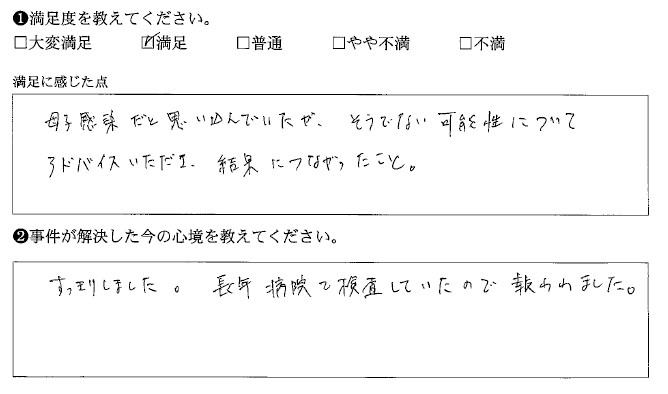 ❶満足度を教えてください。
□大変満足 ☑満足 □普通 □やや不満 □不満
満足に感じた点
母子感染だと思い込んでいたが、そうでない可能性について
アドバイスいただき、結果につながったこと。
❷事件が解決した今の心境を教えてください。
すっきりしました。長年病院で検査していたので報われました。